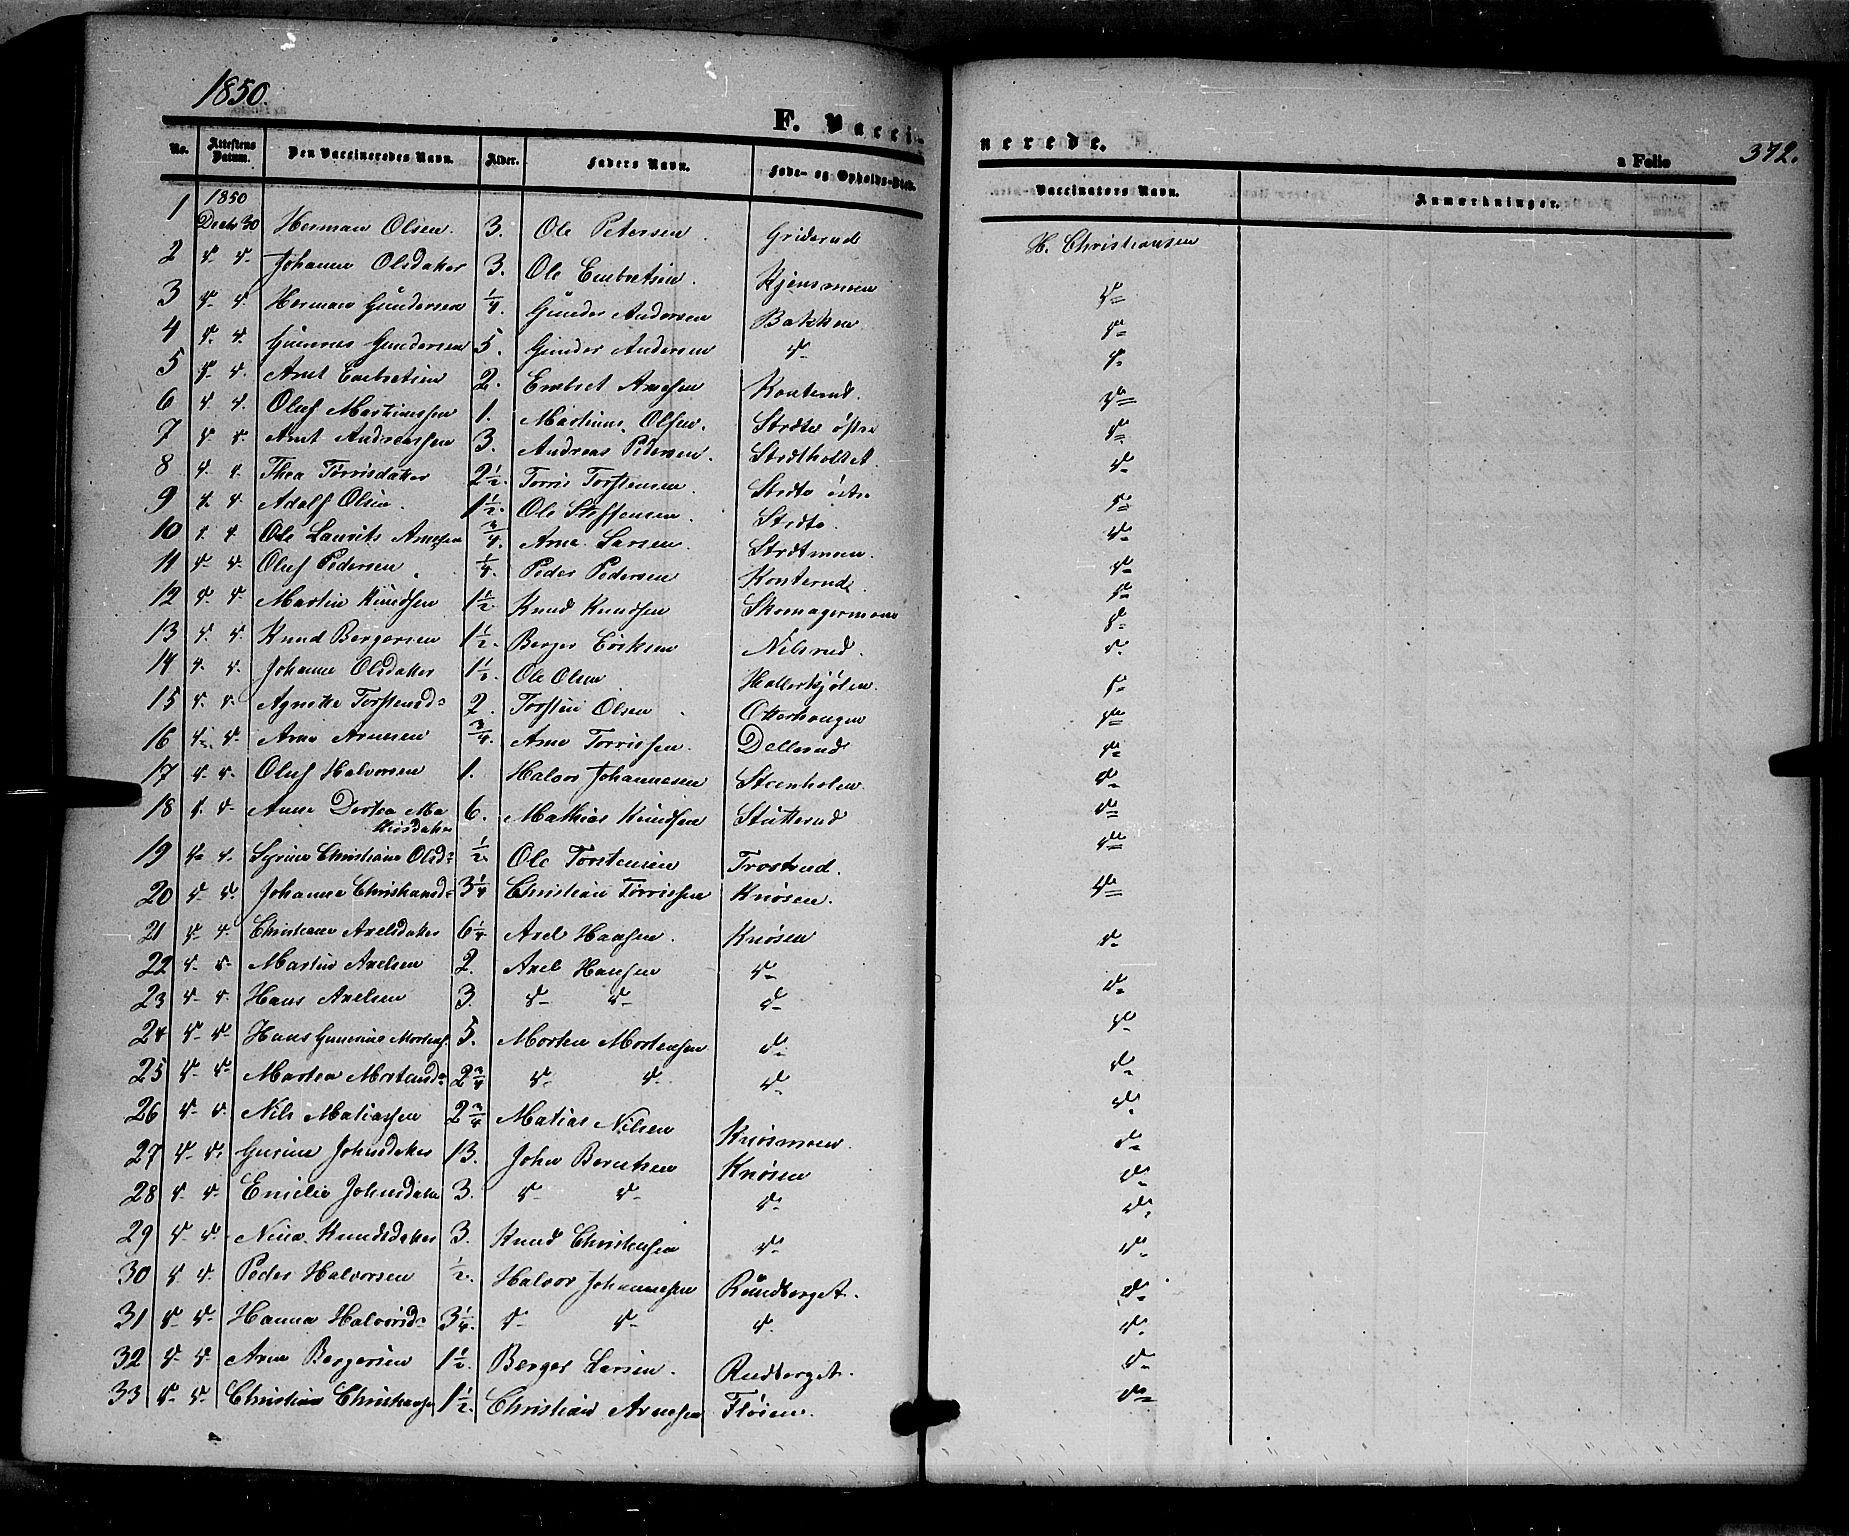 1850.
F. Vaccinerede. a Folio 372.
No. Attestens Datum. Den Vaccineredes Navn. Alder. Faders Navn. Føde- og Opholds-Sted. Vaccinators Navn. Anmærkninger.
1850
1 Decbr 30 Herman Olsen. 3. Ole Petersen. Griderud H. Christiansen
2 d- d- Johanne Olsdatter 3. Ole Embretsen. Kjensmoen d-
3 d- d. Herman Gundersen 1/4. Gunder Andersen Bakken d-
4 d. d. Gunerus Gundersen 5. Gunder Andersen d- d-
5 d- d. Arnt Embretsen 2. Embret Arnesen Konterud. d-
6 d. d. Oluf Martinussen 1. Martinus Olsen. Strøtes østre d-
7 d- d- Arnt Andreassen 3. Andreas Pedersen. Strøtholtet. d-
8 d. d. Thea Torrisdatter 2 1/2. Torris Torstensen. Strøte østre d-
9 d. d. Adolf Olsen. 1 1/2. Ole Steffensen. Strøte. d-
10 d. d. Ole Laurits Arnesen 3/4. Arne Larsen. Strøtmoen. d-
11 d- d. Oluf Pedersen 1/4. Peder Pedersen Konterud. d-
12 d. d. Martin Knudsen 1 1/2. Knud Knudsen Skomagermoen d-
13 d. d. Knud Bergersen 1 1/2. Berger Eriksen Nilsrud. d-
14 d. d. Johanne Olsdatter 1 1/2. Ole Olsen Hallerkjølen. d-
15 d. d. Agnethe Torstensd- 2. Torsten Olsen Otterhougen d-
16 d. d- Arne Arnesen 3/4. Arne Torrissen. Dellerud d-
17 d. d. Oluf Halvorsen 1. Halvor Johannesen Steenholen d-
18 d. d. Anne Dortea Mathisdatter 6. Mathias Knudsen Stutterud d-
19 d- d. Syrine Christiane Olsd- 1/2. Ole Torstensen Trostrud. d-
20 d- d. Johanne Christiansd- 3 1/4 Christian Torrissen Knosen. d-
21 d- d. Christiane Axelsdatter 6 1/4 Axel Hansen. Knøsen d-
22 d- d- Martin Axelsen 2. Axel Hansen d- d-
23 d- d. Hans Axelsen 3. d- d- d- d-
24 d- d- Hans Gunerius Mortens. 5. Morten Mortensen d- d-
25 d- d- Martea Mortensd- 2 3/4 d- d- d- d-
26 d- d. Nils Matiassen 2 3/4 Matias Nilsen Knosmoen. d-
27 d- d. Gurine Johnsdatter 13. John Berntsen Knøsen d-
28 d- d- Emilie Johnsdatter 3. d- d- d- d-
29 d- d- Nina Knudsdatter 3. Knud Christensen d- d-
30 d- d. Peder Halvorsen 1/2. Halvor Johannesen Rundberget. d-
31 d- d- Hanna Halvorsd- 3 1/4. d- d- d- d-
32 d- d- Arne Bergersen 1 1/2. Berger Larsen. Rudberget. d-
33 d- d- Christian Christiansen 1 1/2. Christian Arnesen Fløien. d-